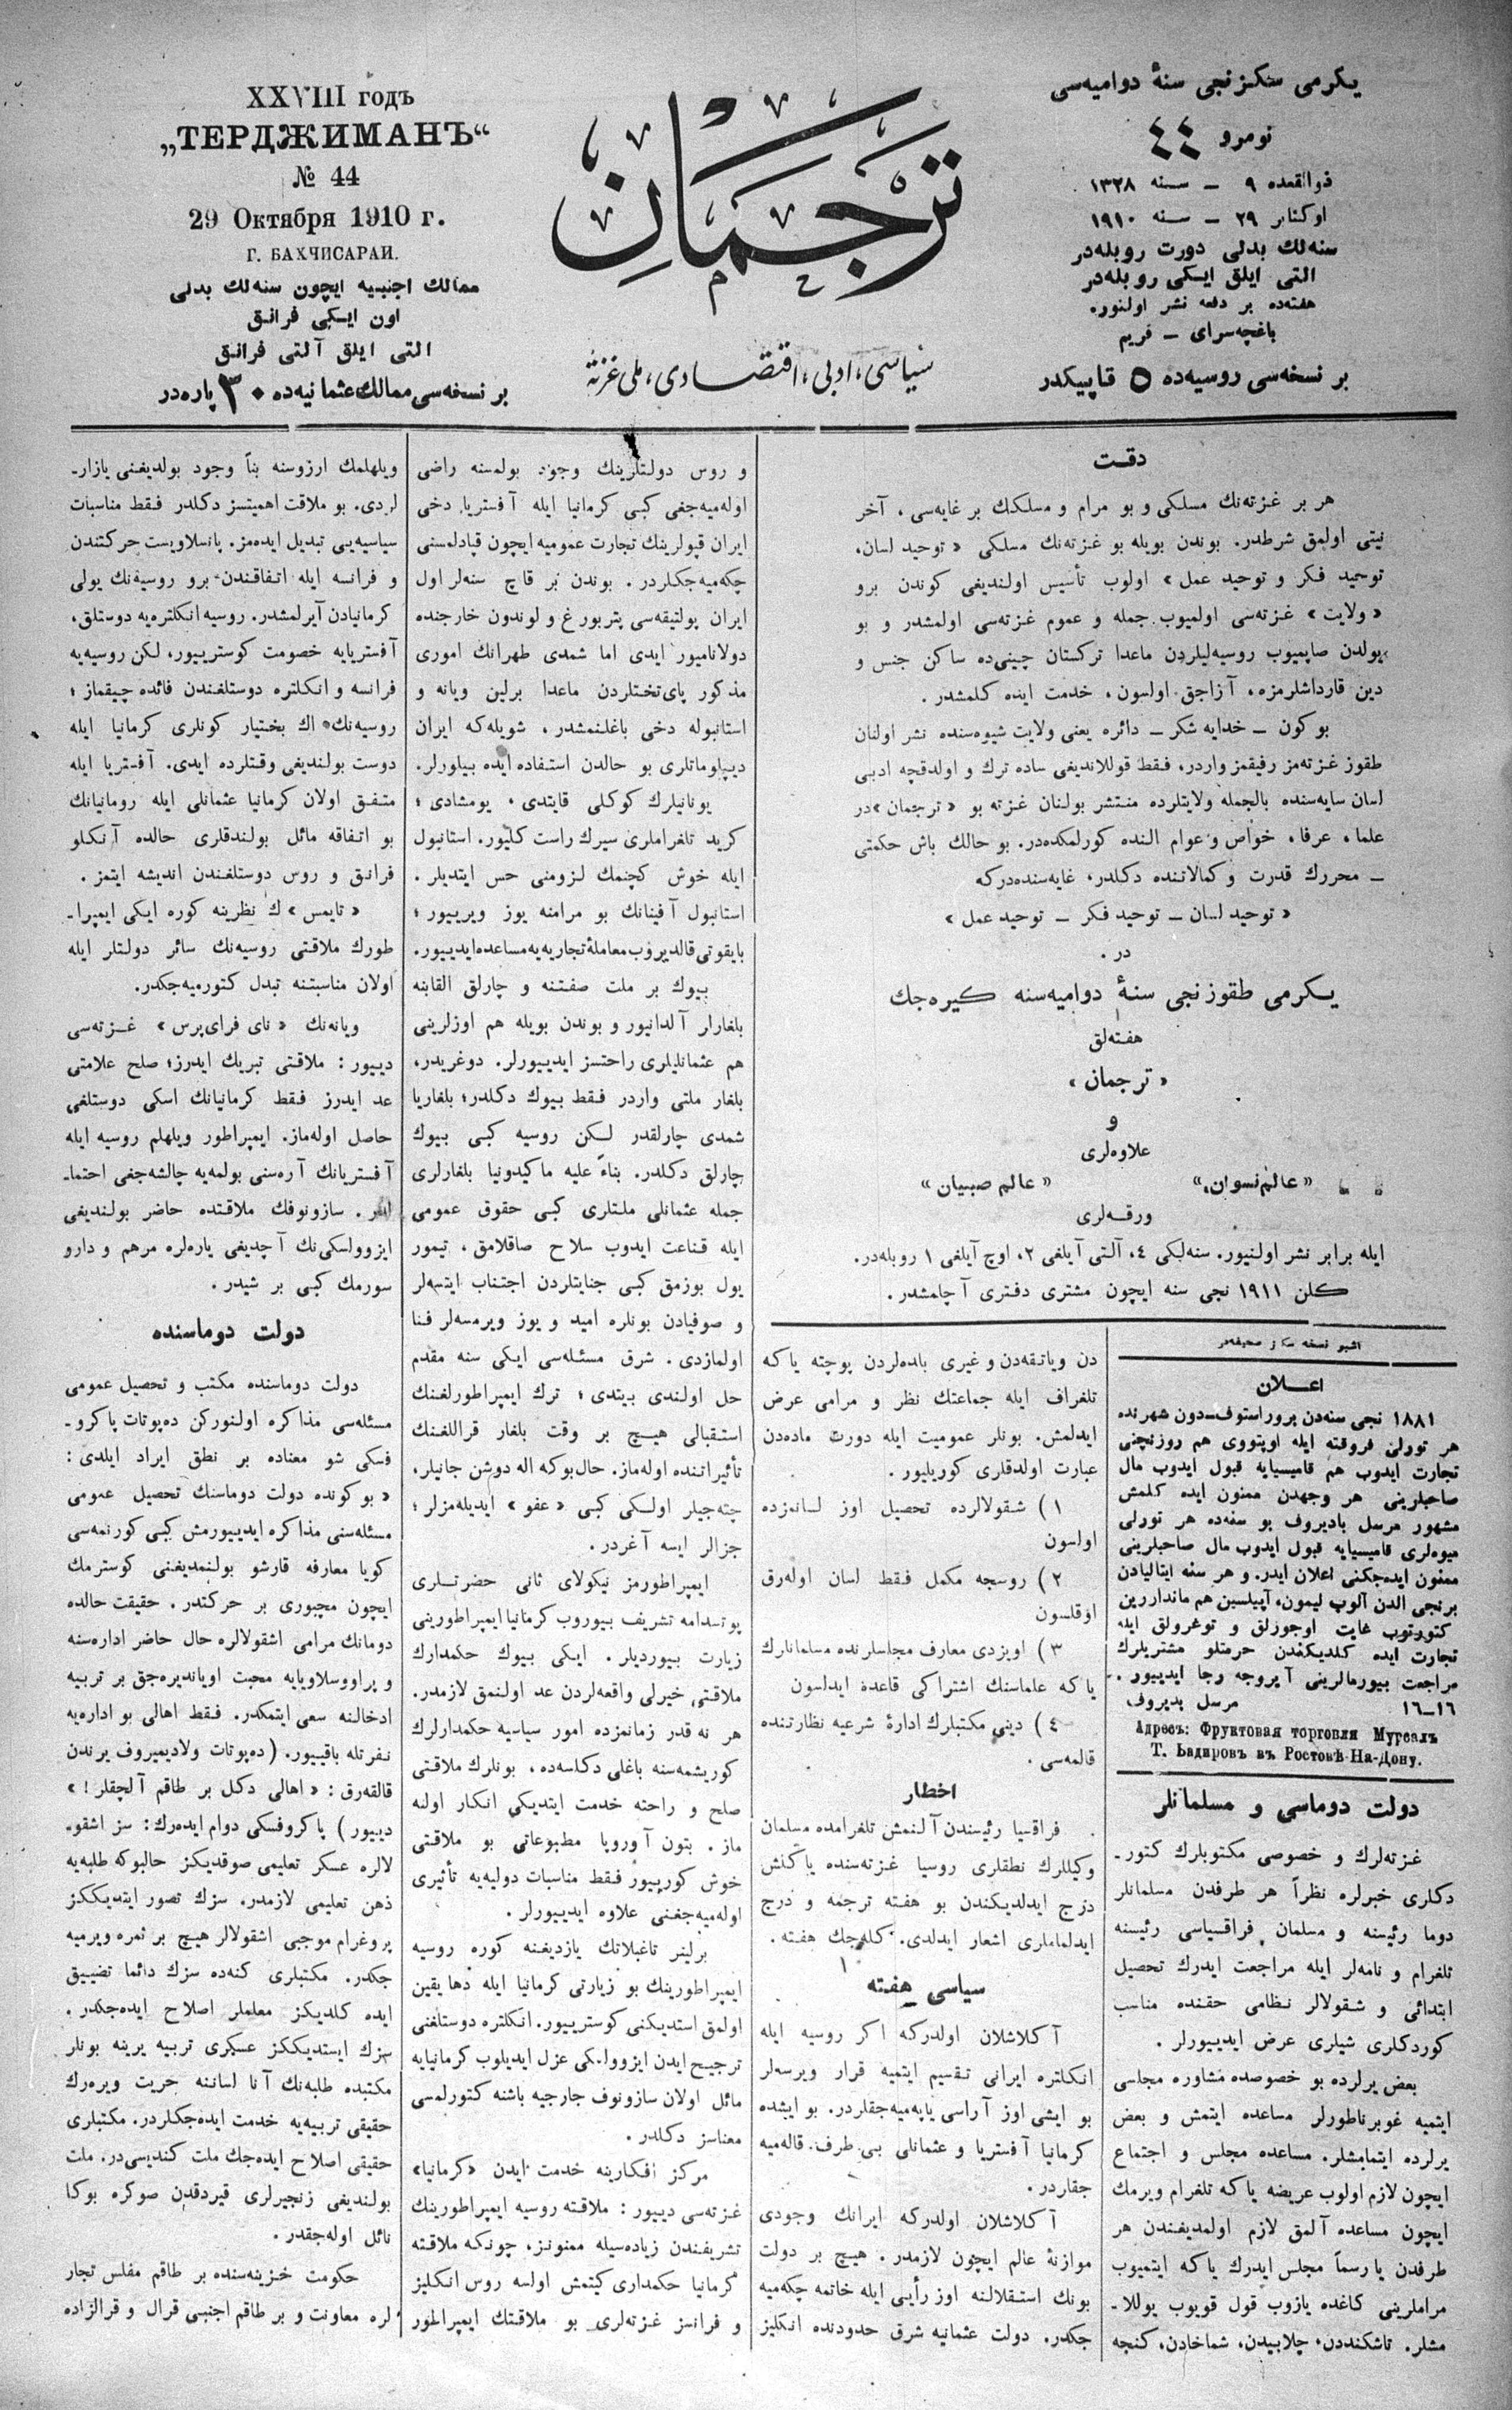 يكرمی سكزنجی سنهٔ دواميه‌سی
نومرو ٤٤
ذوالقعده ٩ ـ سنه ١٣٢٨
اوكتابر ٢٩ ـ سنه ١٩١٠
سنه‌لك بدلی دورت روبله‌در
التی ايلق ايكی روبله‌در
هفته‌ده بر دفعه نشر اولنور.
باغچه‌سرای ـ قريم
بر نسخه‌سی روسيه‌ده ٥ قاپيكدر
ترجمان
سياسی، ادبی، اقتصادی، ملی غزته
XXVIII годъ
„ТЕРДЖИМАНЪ“
№ 44
29 Октября 1910 г.
Г. БАХЧИСАРАИ.
ممالك اجنبيه ايچون سنه‌لك بدلی
اون ايكی فرانق
التی ايلق آلتی فرانق
بر نسخه‌سی ممالك عثمانيه‌ده ٣٠ پاره‌در
دقت
هر بر غزته‌نك مسلكی و بو مرام و مسلكك بر غايه‌سی، آخر
نيتی اولمق شرطدر. بوندن بويله بو غزته‌نك مسلكی « توحيد لسان،
توحيد فكر و توحيد عمل » اولوب تأسيس اولنديغی كوندن برو
« ولايت » غزته‌سی اولميوب جمله و عموم غزته‌سی اولمشدر و بو
يولدن صاپميوب روسيه‌ليلردن ماعدا تركستان چينی‌ده ساكن جنس و
دين قارداشلرمزه، آزاجق اولسون، خدمت ايده كلمشدر.
بو كون ـ خدايه شكر ـ دائره يعنی ولايت شيوه‌سنده نشر اولنان
طقوز غزته‌مز رفيقمز واردر، فقط قوللانديغی ساده ترك و اولدقچه ادبی
لسان سايه‌سنده بالجمله ولايتلرده منتشر بولنان غزته بو « ترجمان »در
علما، عرفا، خواص و عوام النده كورلمكده‌در. بو حالك باش حكمتی
ـ محررك قدرت و كمالاتنده دكلدر، غايه‌سنده‌دركه
« توحيد لسان ـ توحيد فكر ـ توحيد عمل »
در.
يكرمی طقوزنجی سنهٔ دواميه‌سنه كيره‌جك
هفته‌لق
« ترجمان »
و
علاوه‌لری
« عالم نسوان » « عالم صبيان »
ورقه‌لری
ايله برابر نشر اولنيور. سنه‌لكی ٤، آلتی آيلغی ٢، اوچ آيلغی ١ روبله‌در.
كلن ١٩١١ نجی سنه ايچون مشتری دفتری آچلمشدر.
اشبو نسخه سكز صحيفه‌در
اعلان
١٨٨١ نجی سنه‌دن برو راستوف ـ دون شهرنده
هر تورلی فروقته ايله اوپتووی هم روزنچنی
تجارت ايدوب هم قاميسيايه قبول ايدوب مال
صاحبلرينی هر وجهدن ممنون ايده كلمش
مشهور مرسل باديروف بو سنه‌ده هر تورلی
ميوه‌لری قاميسيايه قبول ايدوب مال صاحبلرينی
ممنون ايده‌جكنی اعلان ايدر. و هر سنه ايتاليادن
برنجی الدن آلوب ليمون، آپيلسين هم مانداررين
كتورتوب غايت اوجوزلق و توغرولق ايله
تجارت ايده كلديكندن حرمتلو مشتريلرك
مراجعت بيورمالرينی آيروجه رجا ايدييور.
١٦ـ١٦ مرسل بديروف
Адресъ: Фруктовая торговля Мурсалъ
Т. Бадировъ въ Ростовѣ-На-Дону.
دولت دوماسی و مسلمانلر
غزته‌لرك و خصوصی مكتوبلرك كتور ـ
دكلری خبرلره نظراً هر طرفدن مسلمانلر
دوما رئيسنه و مسلمان فراقسياسی رئيسنه
تلغرام و نامه‌لر ايله مراجعت ايدرك تحصيل
ابتدائی و شقولالر نظامی حقنده مناسب
كوردكلری شيلری عرض ايدييورلر.
بعض يرلرده بو خصوصده مشاوره مجلسی
ايتميه غوبرناطورلر مساعده ايتمش و بعض
يرلرده ايتمامشلر. مساعده مجلس و اجتماع
ايچون لازم اولوب عريضه ياكه تلغرام ويرمك
ايچون مساعده آلمق لازم اولمديغندن هر
طرفدن يا رسماً مجلس ايدرك ياكه ايتميوب
مراملرينی كاغده يازوب قول قويوب يوللا ـ
مشلر. تاشكنددن، چلابيدن، شماخادن، كنجه
دن وياتقه‌دن و غيری بلده‌لردن پوچته ياكه
تلغراف ايله جماعتك نظر و مرامی عرض
ايدلمش. بونلر عموميت ايله دورت ماده‌دن
عبارت اولدقلری كوريليور.
١ ) شقولالرده تحصيل اوز لسانمزده
اولسون
٢ ) روسجه مكمل فقط لسان اوله‌رق
اوقلسون
٣ ) اويزدی معارف مجلسلرنده مسلمانلرك
ياكه علماسنك اشتراكی قاعده ايدلسون
٤ ) دينی مكتبلرك ادارهٔ شرعيه نظارتنده
قالمه‌سی.
اخطار
فراقسيا رئيسندن آلنمش تلغرامده مسلمان
وكيللرك نطقلری روسيا غزته‌سنده ياكلش
درج ايدلديكندن بو هفته ترجمه و درج
ايدلماملری اشعار ايدلدی. كله‌جك هفته.
سياسی هفته
آكلاشلان اولدركه اكر روسيه ايله
انكلتره ايرانی تقسيم ايتميه قرار ويرسه‌لر
بو ايشی اوز آراسی ياپه‌ميه‌جقلردر. بو ايشده
كرمانيا آفستريا و عثمانلی بی طرف قاله‌ميه
جقلردر.
آكلاشلان اولدركه ايرانك وجودی
موازنهٔ عالم ايچون لازمدر. هيچ بر دولت
بونك استقلالنه اوز رأيی ايله خاتمه چكه‌ميه
جكدر. دولت عثمانيه شرق حدودنده انكليز
و روس دولتلرينك وجود بولمسنه راضی
اوله‌ميه‌جغی كبی كرمانيا ايله آفستريا دخی
ايران قپولرينك تجارت عموميه ايچون قپادلمسنی
چكه‌ميه‌جكلردر. بوندن بر قاچ سنه‌لر اول
ايران پولتيقه‌سی پتربورغ و لوندون خارجنده
دولاناميور ايدی اما شمدی طهرانك اموری
مذكور پای‌تختلردن ماعدا برلين ويانه و
استانبوله دخی باغلنمشدر، شويله‌كه ايران
ديپلوماتلری بو حالدن استفاده ايده بيلورلر.
يونانيلرك كوكلی قايتدی، يومشادی؛
كريد تلغراملری سيرك راست كليور. استانبول
ايله خوش كچنمك لزومنی حس ايتديلر.
استانبول آفينانك بو مرامنه يوز ويرييور؛
بايقوتی قالديروب معاملهٔ تجاريه‌يه مساعده ايدييور.
بيوك بر ملت صفتنه و چارلق القابنه
بلغارلر آلدانيور و بوندن بويله هم اوزلرينی
هم عثمانليلری راحتسز ايدييورلر. دوغريدر،
بلغار ملتی واردر فقط بيوك دكلدر؛ بلغاريا
شمدی چارلقدر لكن روسيه كبی بيوك
چارلق دكلدر. بناءً عليه ماكيدونيا بلغارلری
جمله عثمانلی ملتلری كبی حقوق عمومی
ايله قناعت ايدوب سلاح صاقلامق، تيمور
يول بوزمق كبی جنايتلردن اجتناب ايتسه‌لر
و صوفيادن بونلره اميد و يوز ويرمسه‌لر فنا
اولمازدی. شرق مسئله‌سی ايكی سنه مقدم
حل اولندی بيتدی؛ ترك ايمپراطورلغنك
استقبالی هيچ بر وقت بلغار قراللغنك
تأثيراتنده اوله‌ماز. حال‌بوكه اله دوشن جانيلر،
چته‌جيلر اولكی كبی « عفو » ايديله‌مزلر؛
جزالر ايسه آغردر.
ايمپراطورمز نيكولای ثانی حضرتلری
پوتسدامه تشريف بيوروب كرمانيا ايمپراطورينی
زيارت بيورديلر. ايكی بيوك حكمدارك
ملاقتی خيرلی واقعه‌لردن عد اولنمق لازمدر.
هر نه قدر زمانمزده امور سياسيه حكمدارلرك
كوريشمه‌سنه باغلی دكلسه‌ده، بونلرك ملاقتی
صلح و راحته خدمت ايتديكی انكار اولنه
ماز. بتون آوروپا مطبوعاتی بو ملاقتی
خوش كورييور فقط مناسبات دوليه‌يه تأثيری
اوله‌ميه‌جغنی علاوه ايدييورلر.
برلينر تاغبلاتك يازديغنه كوره روسيه
ايمپراطورينك بو زيارتی كرمانيا ايله دها يقين
اولمق استديكنی كوسترييور. انكلتره دوستلغنی
ترجيح ايدن ايزوولسكی عزل ايديلوب كرمانيايه
مائل اولان سازونوف خارجيه باشنه كتورلمسی
معناسز دكلدر.
مركز افكارينه خدمت ايدن « كرمانيا »
غزته‌سی دييور: ملاقته روسيه ايمپراطورينك
تشريفندن زياده‌سيله ممنونز، چونكه ملاقته
كرمانيا حكمداری كيتمش اولسه روس انكليز
و فرانسز غزته‌لری بو ملاقتك ايمپراطور
ويلهلمك ارزوسنه بناً وجود بولديغنی يازار ـ
لردی. بو ملاقت اهميتسز دكلدر فقط مناسبات
سياسيه‌يی تبديل ايده‌مز. پانسلاويست حركتندن
و فرانسه ايله اتفاقندن برو روسيه‌نك يولی
كرمانيادن آيرلمشدر. روسيه انكلتره‌يه دوستلق،
آفستريايه خصومت كوسترييور، لكن روسيه‌يه
فرانسه و انكلتره دوستلغندن فائده چيقماز؛
روسيه‌نك اك بختيار كونلری كرمانيا ايله
دوست بولنديغی وقتلرده ايدی. آفستريا ايله
متفق اولان كرمانيا عثمانلی ايله رومانيانك
بو اتفاقه مائل بولندقلری حالده آنكلو
فرانق و روس دوستلغندن انديشه ايتمز.
« تايمس » ك نظرينه كوره ايكی ايمپرا ـ
طورك ملاقتی روسيه‌نك سائر دولتلر ايله
اولان مناسبتنه تبدل كتورميه‌جكدر.
ويانه‌نك « نای فرای پرس » غزته‌سی
دييور: ملاقتی تبريك ايدرز؛ صلح علامتی
عد ايدرز فقط كرمانيانك اسكی دوستلغی
حاصل اوله‌ماز. ايمپراطور ويلهلم روسيه ايله
آفستريانك آره‌سنی بولمه‌يه چالشه‌جغی احتما ـ
لدر. سازونوفك ملاقتده حاضر بولنديغی
ايزوولسكی‌نك آچديغی ياره‌لره مرهم و دارو
سورمك كبی بر شيدر.
دولت دوماسنده
دولت دوماسنده مكتب و تحصيل عمومی
مسئله‌سی مذاكره اولنوركن ده‌پوتات پاكرو ـ
فسكی شو معناده بر نطق ايراد ايلدی:
« بو كونده دولت دوماسنك تحصيل عمومی
مسئله‌سنی مذاكره ايدييورمش كبی كورنمه‌سی
كويا معارفه قارشو بولنمديغنی كوسترمك
ايچون مجبوری بر حركتدر. حقيقت حالده
دومانك مرامی اشقولالره حال حاضر اداره‌سنه
و پراووسلاويايه محبت اويانديره‌جق بر تربيه
ادخالنه سعی ايتمكدر. فقط اهالی بو اداره‌يه
نفرتله باقييور. (ده‌پوتات ولاديميروف يرندن
قالقه‌رق: « اهالی دكل بر طاقم آلچقلر! »
دييور) پاكروفسكی دوام ايده‌رك: سز اشقو ـ
لالره عسكر تعليمی صوقديكز حالبوكه طلبه‌يه
ذهن تعليمی لازمدر. سزك تصور ايتديككز
پروغرام موجبی اشقولالر هيچ بر ثمره ويرميه
جكدر. مكتبلری كنه‌ده سزك دائما تضييق
ايده كلديكز معلملر اصلاح ايده‌جكدر.
سزك ايستديككز عسكری تربيه يرينه بونلر
مكتبده طلبه‌نك آنا لساننه حريت ويره‌رك
حقيقی تربيه‌يه خدمت ايده‌جكلردر. مكتبلری
حقيقی اصلاح ايده‌جك ملت كنديسی‌در. ملت
بولنديغی زنجيرلری قيردقدن صوكره بوكا
نائل اوله‌جقدر.
حكومت خزينه‌سنده بر طاقم مفلس تجار
لره معاونت و بر طاقم اجنبی قرال و قرالزاده